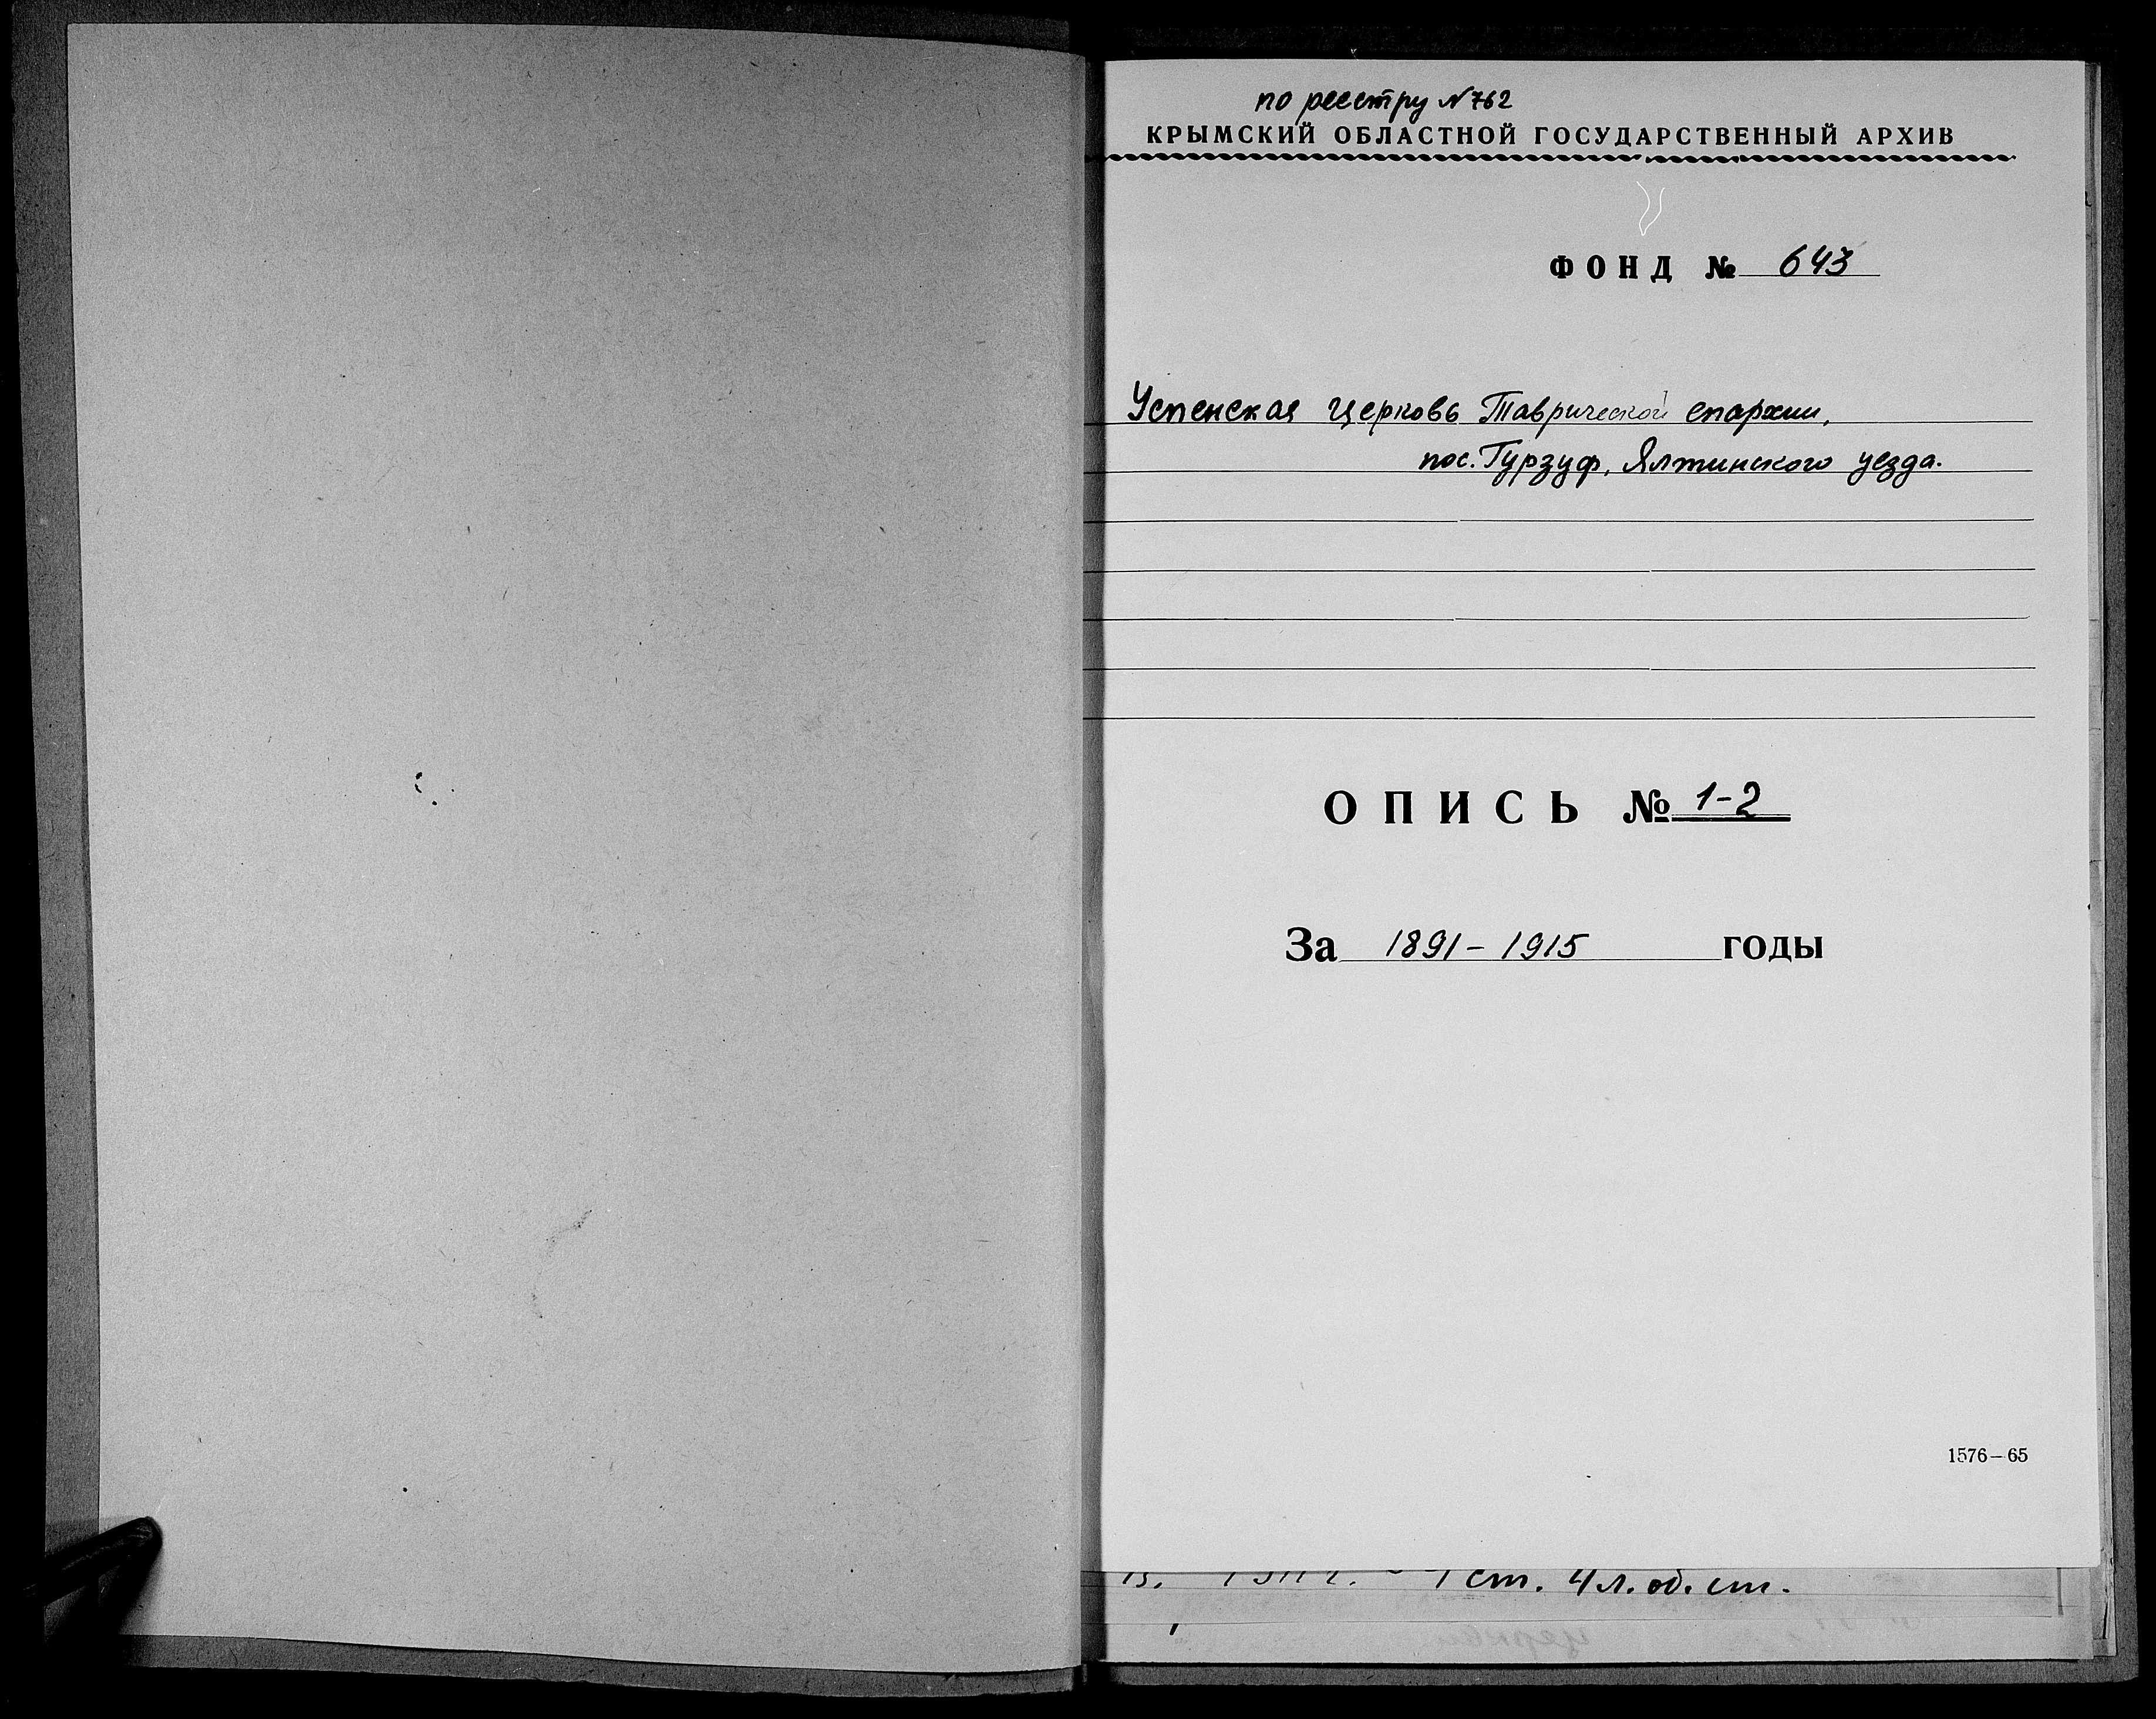 по реестру N 762
КРЫМСКИЙ ОБЛАСТНОЙ ГОСУДАРСТВЕННЫЙ АРХИВ
ФОНД № 643
Успенская церковь Таврической епархии,
пос. Гурзуф, Ялтинского уезда.
ОПИСЬ № 1-2
За 1891-1915 годы
1576—65
ст. 4 л. об. ст.